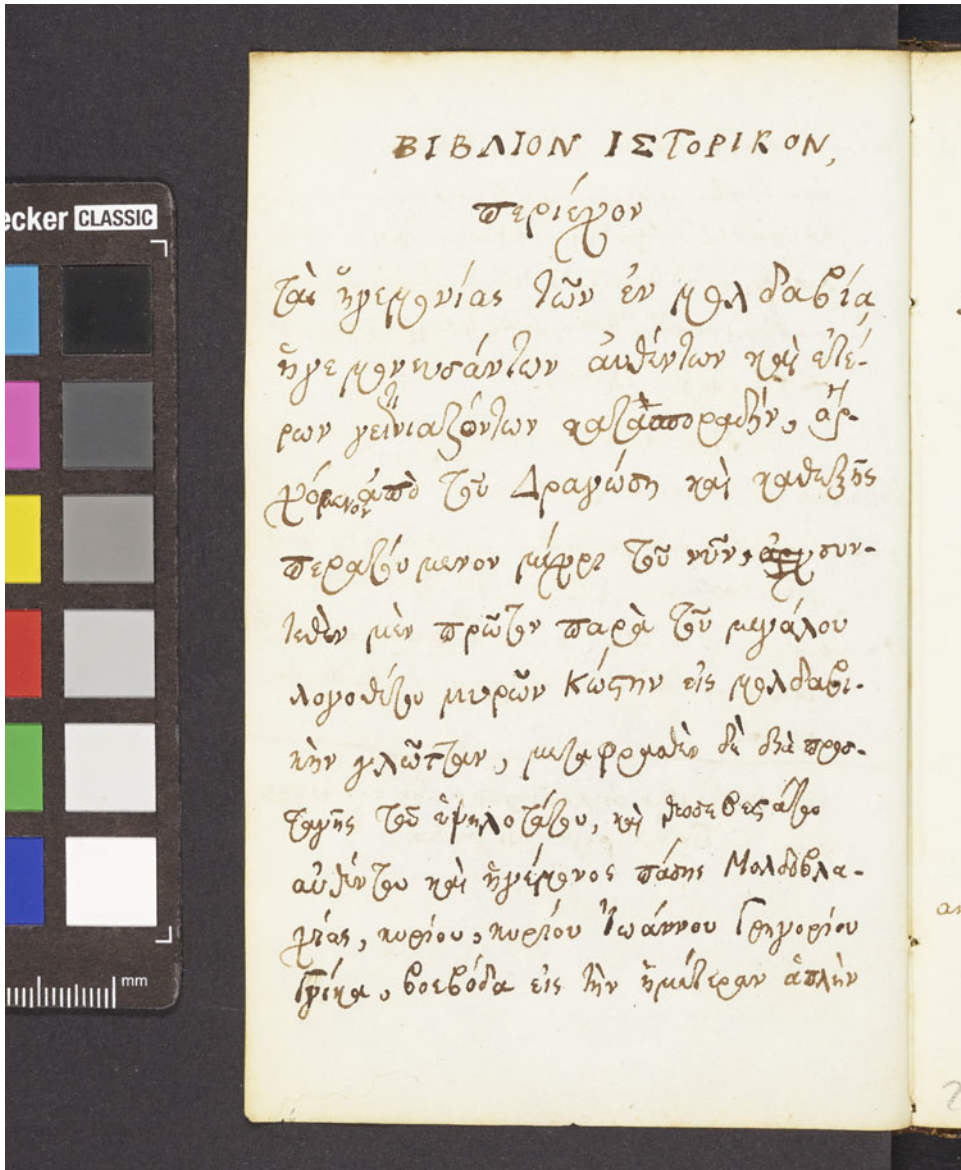 ecker CLASSIC
ΒΙΒΛΙΟΝ ΙΣΤΟΡΙΚΟΝ,
περιέχον
τὰς ἡγεμονίας τῶν ἐν μολδαβίᾳ
ἡγεμονευσάντων αὐθέντων καὶ ἑτέ-
ρων
χόμενον ἀπὸ τοῦ Δραγώση καὶ καθεξῆς
περατούμενον μέχρι τοῦ νῦν, συν-
τεθὲν μὲν πρῶτον παρὰ τοῦ μεγάλου
λογοθέτου μυρῶν Κώστην εἰς μολδαβι-
κὴν γλῶτταν, μεταφρασθὲν δὲ διὰ προσ-
ταγῆς τοῦ ὑψηλοτάτου, καὶ θεοσεβεστάτου
αὐθέντου καὶ ἡγεμόνος πάσης Μολδοβλα-
χίας, κυρίου, κυρίου Ἰωάννου Γρηγορίου
Γγίκα, βοεβόδα εἰς τὴν ἡμετέραν ἁπλὴν
mm